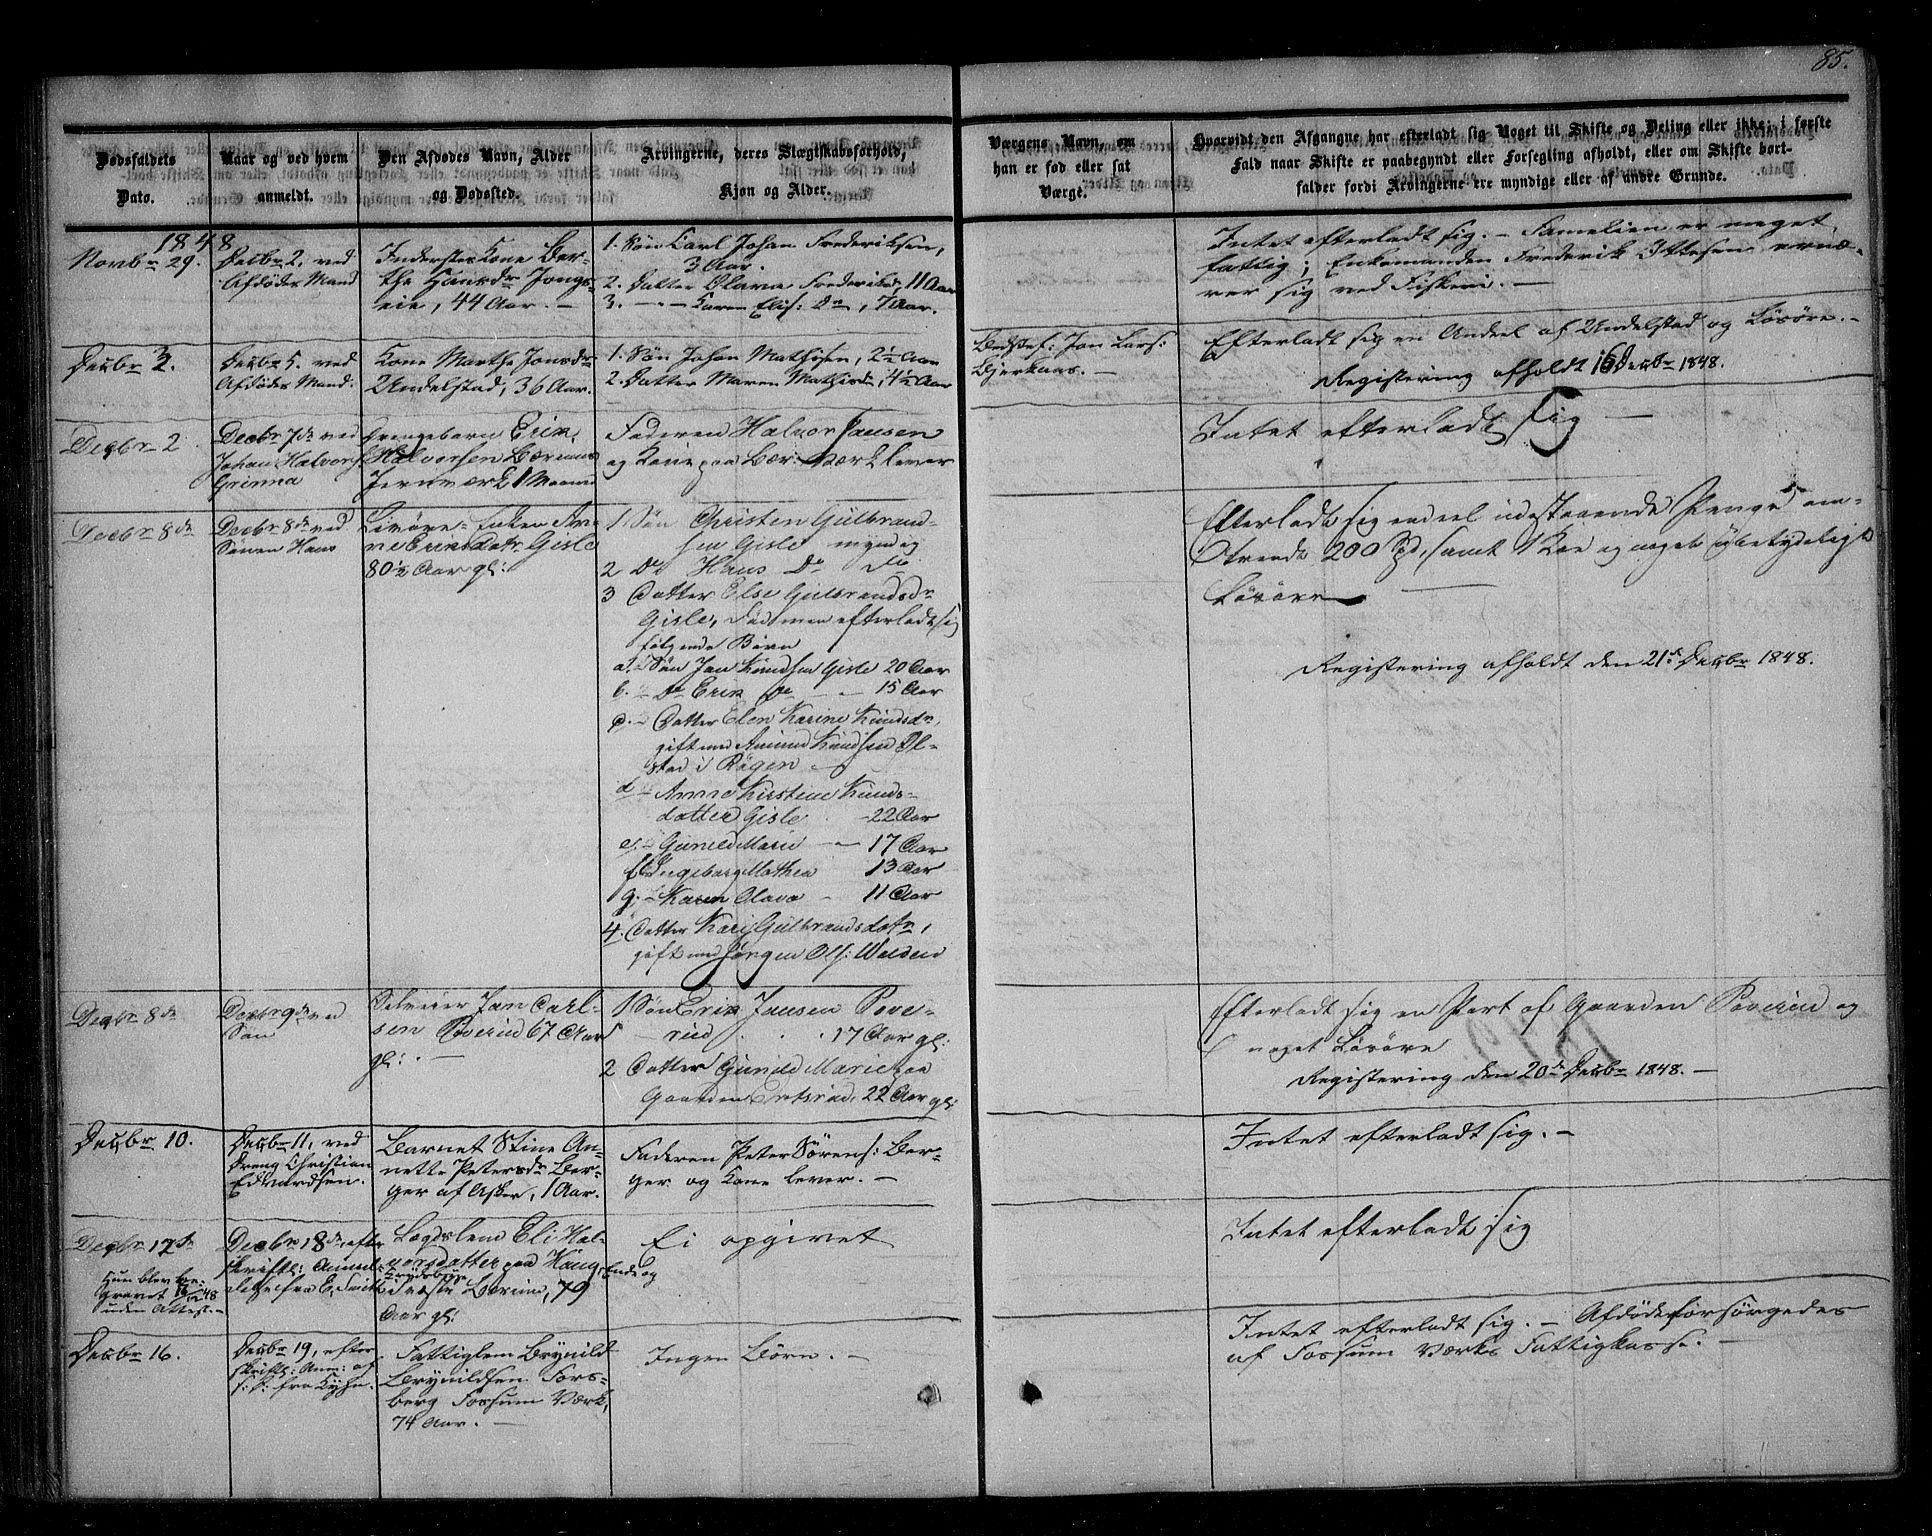 85.
Dødsfaldets
Dato.
Naar og ved hvem
anmeldt.
Den Afdødes Navn, Alder
og Dødssted.
Arvingerne, deres Slægtskabsforhold,
Kjøn og Alder.
Værgens Navn, om
han er født eller sat
Værge.
Hvorvidt den Afgangne har efterladt sig Noget til Skifte og Deling eller ikke; i første
Fald naar Skifte er paabegyndt eller Forsegling afholdt, eller om Skifte bort-
falder fordi Arvingerne ere myndige eller af andre Grunde.
1848
Novbr 29.
Decbr 2, ved
Afdødes Mand
Inderste Kone Ber-
the Hansdr Jongs-
eie, 44 Aar. —
1. Søn Carl Johan Frederiksen,
3 Aar.
2. Datter Olava Frederiksd, 11 Aar
3. —"— Karen Elis: Do, 7 Aar.
Intet efterladt sig. — Familien er meget
fattig; Enkemanden Frederik Ittesen ernæ-
rer sig ved Fiskeri. —
Decbr 2.
Decbr 5. ved
Afdødes Mand.
Kone Marthe Jonsdr
Undelstad, 36 Aar.
1. Søn Johan Mathisen, 2½ Aar
2. Datter Maren Mathisdr, 4½ Aar
Bedstef: Jon Lars:
Bjerkaas. —
Efterladt sig en Andeel af Undelstad og Løsøre. —
Registering afholdt 16 Decbr 1848.
Decbr 2
Decbr 7de ved
Johan Halvors
Grinna
Drengebarn Erik
Halvorsen Bærums
Jernværk 1 Maaned
Faderen Halvor Jansen
og Kone paa Bær: Værk lever
Intet efterladt sig —
Decbr 8de
Decbr 8de ved
Sønen Hans
Livøre- Enken An-
ne Eriksdatr Gisle
80½ Aar gl:
1 Søn Christen Gulbrand-
sen Gisle myndig
2 Do Hans Do do
3 Datter Else Gulbrandsdr
Gisle, død men efterladt sig
følgende Børn
a. Søn Jan Knudsen Gisle 20 Aar
b. — Do Erik Do — 15 Aar
c. — Datter Elen Karine Knudsdr,
gift med Amund Knudsen Øl-
stad i Røgen —
d — Anne Kirstine Knuds-
datter Gisle - 22 Aar
e. — Gunild Marie — 17 Aar
f Ingeborg Mathea 13 Aar
g. — Karen Olava — 11 Aar
4. Datter Kari Gulbrandsdatr,
gift med Jørgen Ols: Walsen
Efterladt sig endeel udestaaende Penge om-
trendt 200 Spd, samt 1 Koe og noget ubetydeligt
Løsøre —
Registering afholdt den 21de Decbr 1848.
Decbr 8de
Decbr 9de ved
Søn
Selveier Jan Carl-
sen Poverud 67 Aar
gl: —
1 Søn Erik Jansen Pove-
rud 17 Aar gl:
2 Datter Gunild Marie paa
Gaarden 22 Aar gl:
Efterladt sig en Part af Gaarden Poverud og
noget Løsøre
Registering den 20de Decbr 1848. —
Decbr 10.
Decbr 11, ved
Dreng Christian
Edvardsen.
Barnet Stine An-
nette Petersdr Ber-
ger af Asker, 1 Aar.
Faderen Peter Sørens: Ber-
ger og Kone lever. —
Intet efterladt sig. —
Decbr 17de
Hun blev be-
gravet 16/12 48
uden Attest. —
Decbr 18de efter
skriftl: Anmel-
delse fra E. Smith
Lægdslem Eli Hal-
vorsdatter paa Haug,
i vestre Bærum, 79
Aar gl:
Ei opgivet
Intet efterladt sig
Decbr 16.
Decbr 19, efter
skriftl: Anm: af
s: k: fra Kyhn.
Fattiglem Brynild
Brynildsen Fors-
berg Fossum Værk,
74 Aar. —
Ingen Børn. —
Intet efterladt sig. — Afdøde forsørgedes
af Fossum Værks Fattigkasse. —